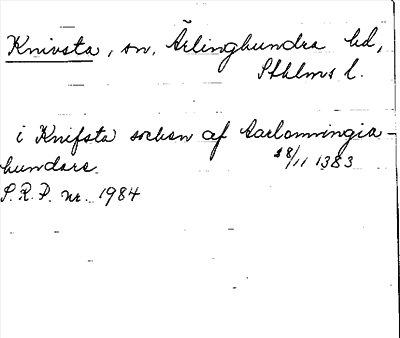 Knivsta, sn, Ärlinghundra hd,
Sthlms l.
i Knifsta socken af Aarlomningia-
hundare. 28/11 1383
S.R.P. nr. 1984